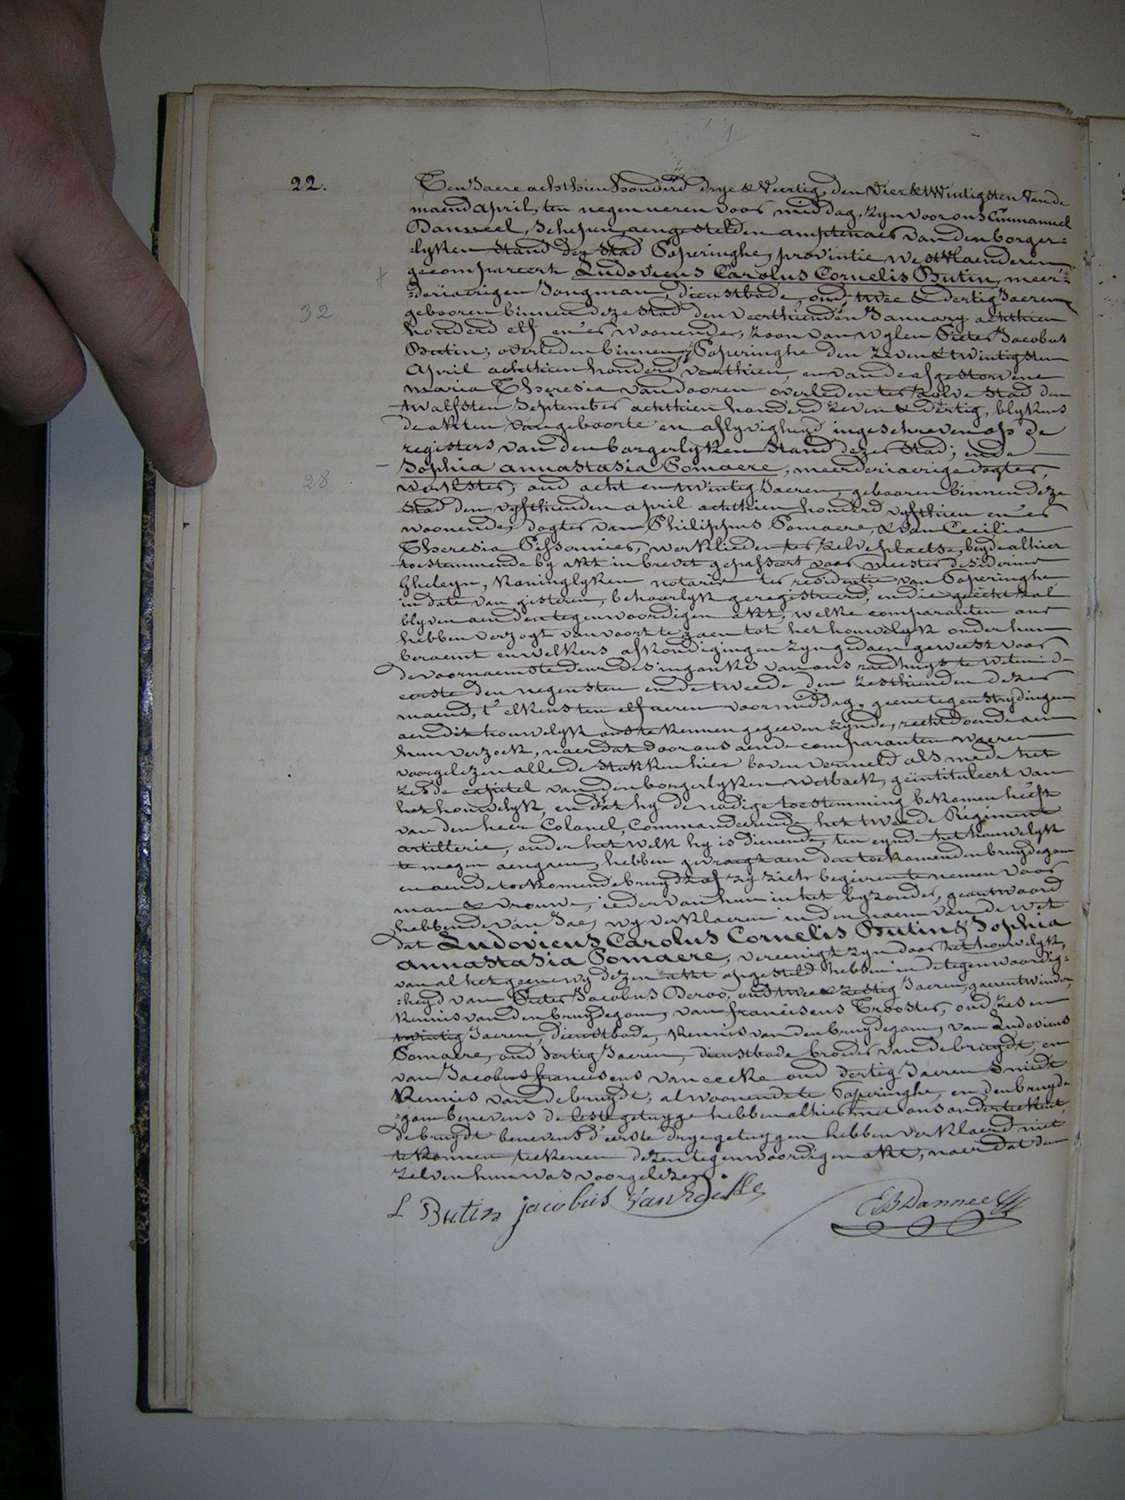 22.
Ten Jaere achthien honderd drye & Veertig, den Vier & twintigsten Van de
maend April, ten negen ueren voor middag, zyn voor ons Emmanuel
schepen, aengestelden amptenaer van den borger-
lyken Stand der Stad Poperinghe, provintie Westvlaenderen
gecompareert Ludovicus Carolus Cornelis Butin, meer-
derjaerigen Jongman, dienstbode, oud twee & dertig Jaeren
32
gebooren binnen deze Stad den veerthienden January achthien
honderd elf en er woonende, zoon van wylen Pieter Jacobus
Butin, overleden binnen Poperinghe den zeven & twintigsten
April achthien honderd veerthien, en van de afgestorvene
Maria Theresia Vandooren overleden ter zelve Stad den
twalfsten September achthien honderd zeven & dertig, blykens
de akten van geboorte en aflyvigheyd ingeschreven op de
registers van den borgerlyken Stand dezer Stad, ende
Sophia Annastasia Pomaere, meerderjaerige dogter,
28
werkster, oud acht en twintig Jaeren, gebooren binnen deze
Stad den vyfthienden april achthien honderd vyfthien en er
woonende, dogter van Philippus Pomaere, & van Cecilia
Theresia werklieden ter zelve plaetse, beyde alhier
toestemmende by akt in brevet gepasseert voor meester Desiderius
Gheleyn, Koninglyken notaris ter residentie van Poperinghe
in date van gisteren, behoorlyk geregistreerd, en die gehecht zal
blyven aen den tegenwoordigen akt, welke comparanten ons
hebben verzogt van voorts te gaen tot het houwelyk onder hun
beraemt en welkers afkondigingen zyn gedaen geweest voor
de voornaemste deure des inganks van ons raedhuys te weten: de
eerste den negensten en de tweede den zesthienden dezer
maend, t'elkens ten elf ueren voormiddag, geene tegenstrydingen
aen dit houwelyk ons te kennen gegeven zynde, recht doende aen
hun verzoek, naer dat door ons aen de comparanten waeren
voorgelezen alle de stukken hier boven vermeld als mede het
zesde capitel van den borgerlyken wetboek, geintituleert van
het houwelyk, en dat hy de nodige toestemming bekomen heeft
van den heer Colonel, Commandeerende het tweede Regiment
artillerie, onder het welk hy is dienende, ten eynde het houwelyk
te mogen aengaen, hebben gevraegt aen den toekomenden bruydegom
en aen de toekomende bruyd of zy zich begeeren te nemen voor
man & vrouwe, ieder van hun in het byzonder, geantwoord
hebbende van Jae, wy verklaeren in den naem van de wet
dat Ludovicus Carolus Cornelis Butin & Sophia
Annastasia Pomaere, vereenigt zyn door het houwelyk,
van al het geene wy dezen akt opgesteld hebben in de tegenwoordig-
heyd van Pieter Jacobus Deroo, oud twee & zestig Jaeren,
kennis van den bruydegom, van Franciscus Trooster, oud zes en
twintig Jaeren, dienstbode, kennis van den bruydegom, van Ludovicus
Pomaere, oud dertig Jaeren, dienstbode broeder van de bruydt, en
van Jacobus Franciscus van eecke oud dertig Jaeren Smidt
kennis van de bruydt, al woonende te Poperinghe, en den bruyde-
gom benevens de leste getuyge hebben alhier met ons onderteekent,
de bruydt benevens d'eerste drye getuygen hebben verklaerd niet
te konnen teekenen dezen tegenwoordigen akt, naer dat den
zelven hun was voorgelezen
L Butin jacobus